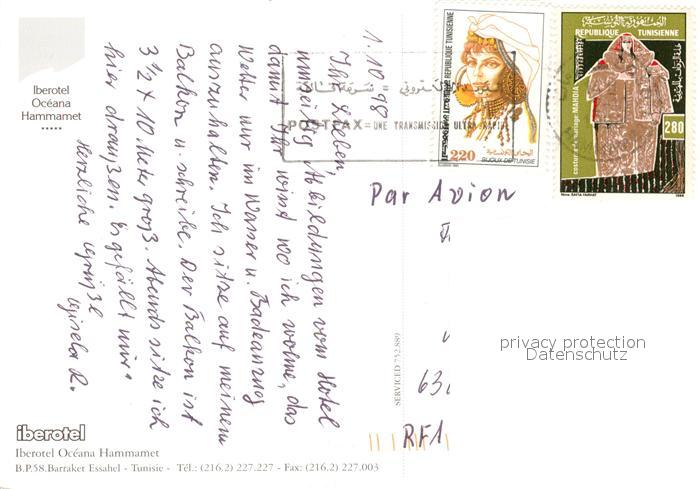 Iberotel
Océana
Hammamet
*****
1.10.98
Ihr Lieben,
umseitig Abbildungen vom Hotel
damit Ihr wisst wo ich wohne, das
Wetter nur im Wasser u. Badeanzug
auszuhalten. Ich sitze auf meinem
Balkon u. schreibe. Der Balkon ist
3 1/2 x 10 Meter groß. Abends sitze ich
hier draußen. Es gefällt mir.
Herzliche Grüße
Gisela R.
REPUBLIQUE TUNISIENNE
220
BIJOUX DE TUNISIE
REPUBLIQUE
TUNISIENNE
280
costume de mariage MAHDIA
1988
POSTFAX = UNE TRANSMISSION ULTRA RAPIDE
Par Avion
63
RF1
SERVICED 752.889
privacy protection
Datenschutz
iberotel
Iberotel Océana Hammamet
B.P.58.Barraket Essahel - Tunisie - Tél.: (216.2) 227.227 - Fax: (216.2) 227.003